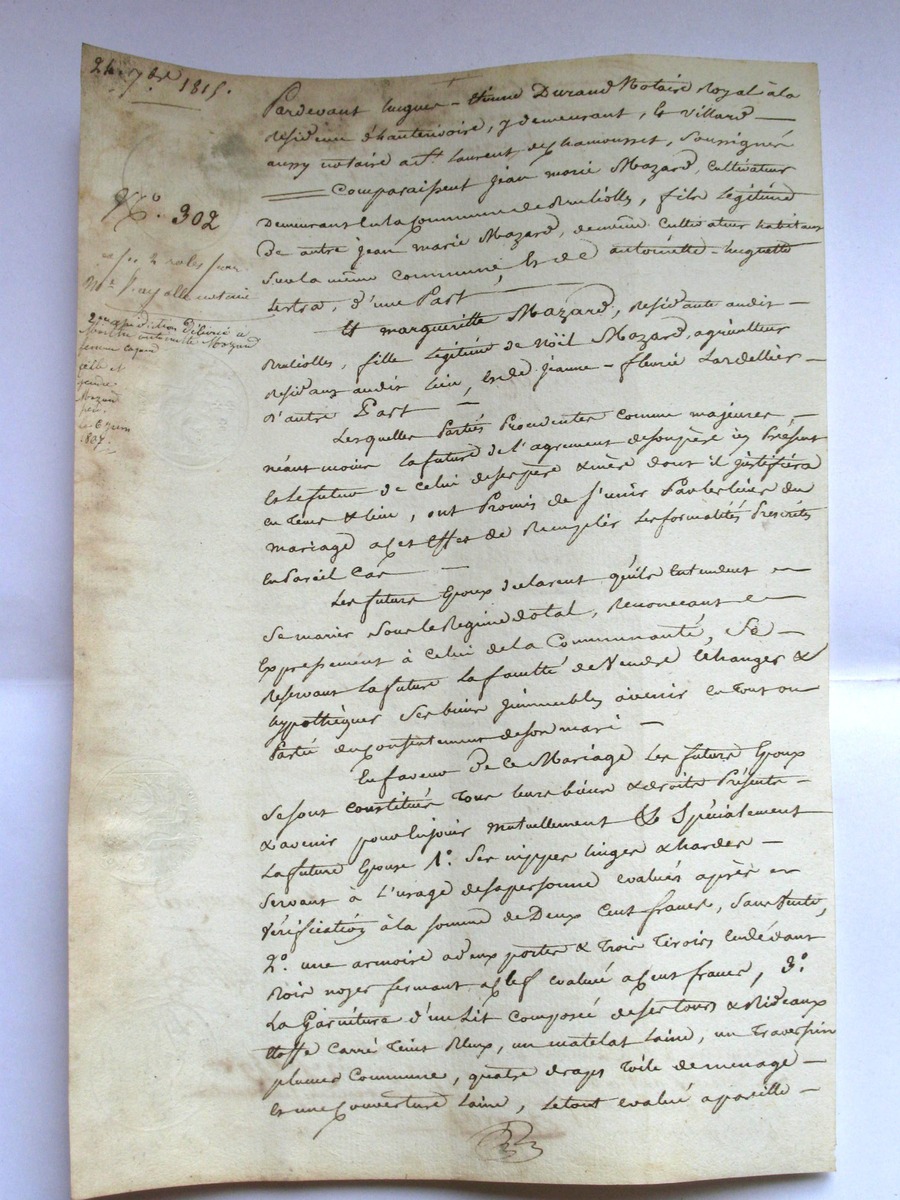 24 7bre 1815.
N° 302
2 roles
notaire
2me expédition délivrée a
Mazard
femme
et
Mazard
le 6 juin
Pardevant hugues - Etienne Durand Notaire Royal à la
résidence d'hauterivoire, y demeurant, & Villard
aussy notaire a St Laurent de chamousset, soussignés
Comparaissent jean marie Mazard, cultivateur
Demeurant en la Commune de Brulliolles, fils légitime
De autre jean marie Mazard, de même cultivateur habitant
Sur la même commune, & de antoinette - huguette
Lestra, d'une Part
Et margueritte Mazard, résidante audit
Brulliolles, fille légitime de Noël Mazard, agriculteur
résidant audit lieu, & de jeanne - fleurie Lardellier
d'autre Part
Lesquelles Parties Procédentes comme majeures
néant moins la future de l'agrément de son père icy Présent
Et le futur de celui de ses père & mère dont il justifiera
en tems & lieu, ont Promis de s'unir Par les liens du
mariage a cet effet de Remplir les formalités Prescrites
En Pareil Cas
Les futurs Epoux déclarent qu'ils Entendent
Se marier Sous le Régime dotal, Renonceant
Expressement à Celui de la Communauté, Se
Réservant la future la faculté de Vendre Echanger &
hypothèquer Ses biens immeubles avenir en Tout ou
Partie du Consentement de son mari
En faveur De Ce Mariage Les futurs Epoux
Se sont Constitués Tous leurs biens & droits Présents
& avenir pour En jouir mutuellement & Spécialement
La future Epouse 1° Ses nippes linges & hardes
Servant à L'usage de sa personne évalués après
Vérification à la somme de Deux Cent francs, Sans Vente,
2° une armoire a deux portes & Trois Tiroirs En dedans
Bois noyer fermant a clef évalué a Cent francs, 3°
La Garniture d'un Lit composé de ses tours & Rideaux
Etoffe Carré Teint Bleux, un matelat Laine, un Traverpin
plumes Commune, quatre draps Toile de menage
Et une Couverture Laine, Le tout évalué a pareille